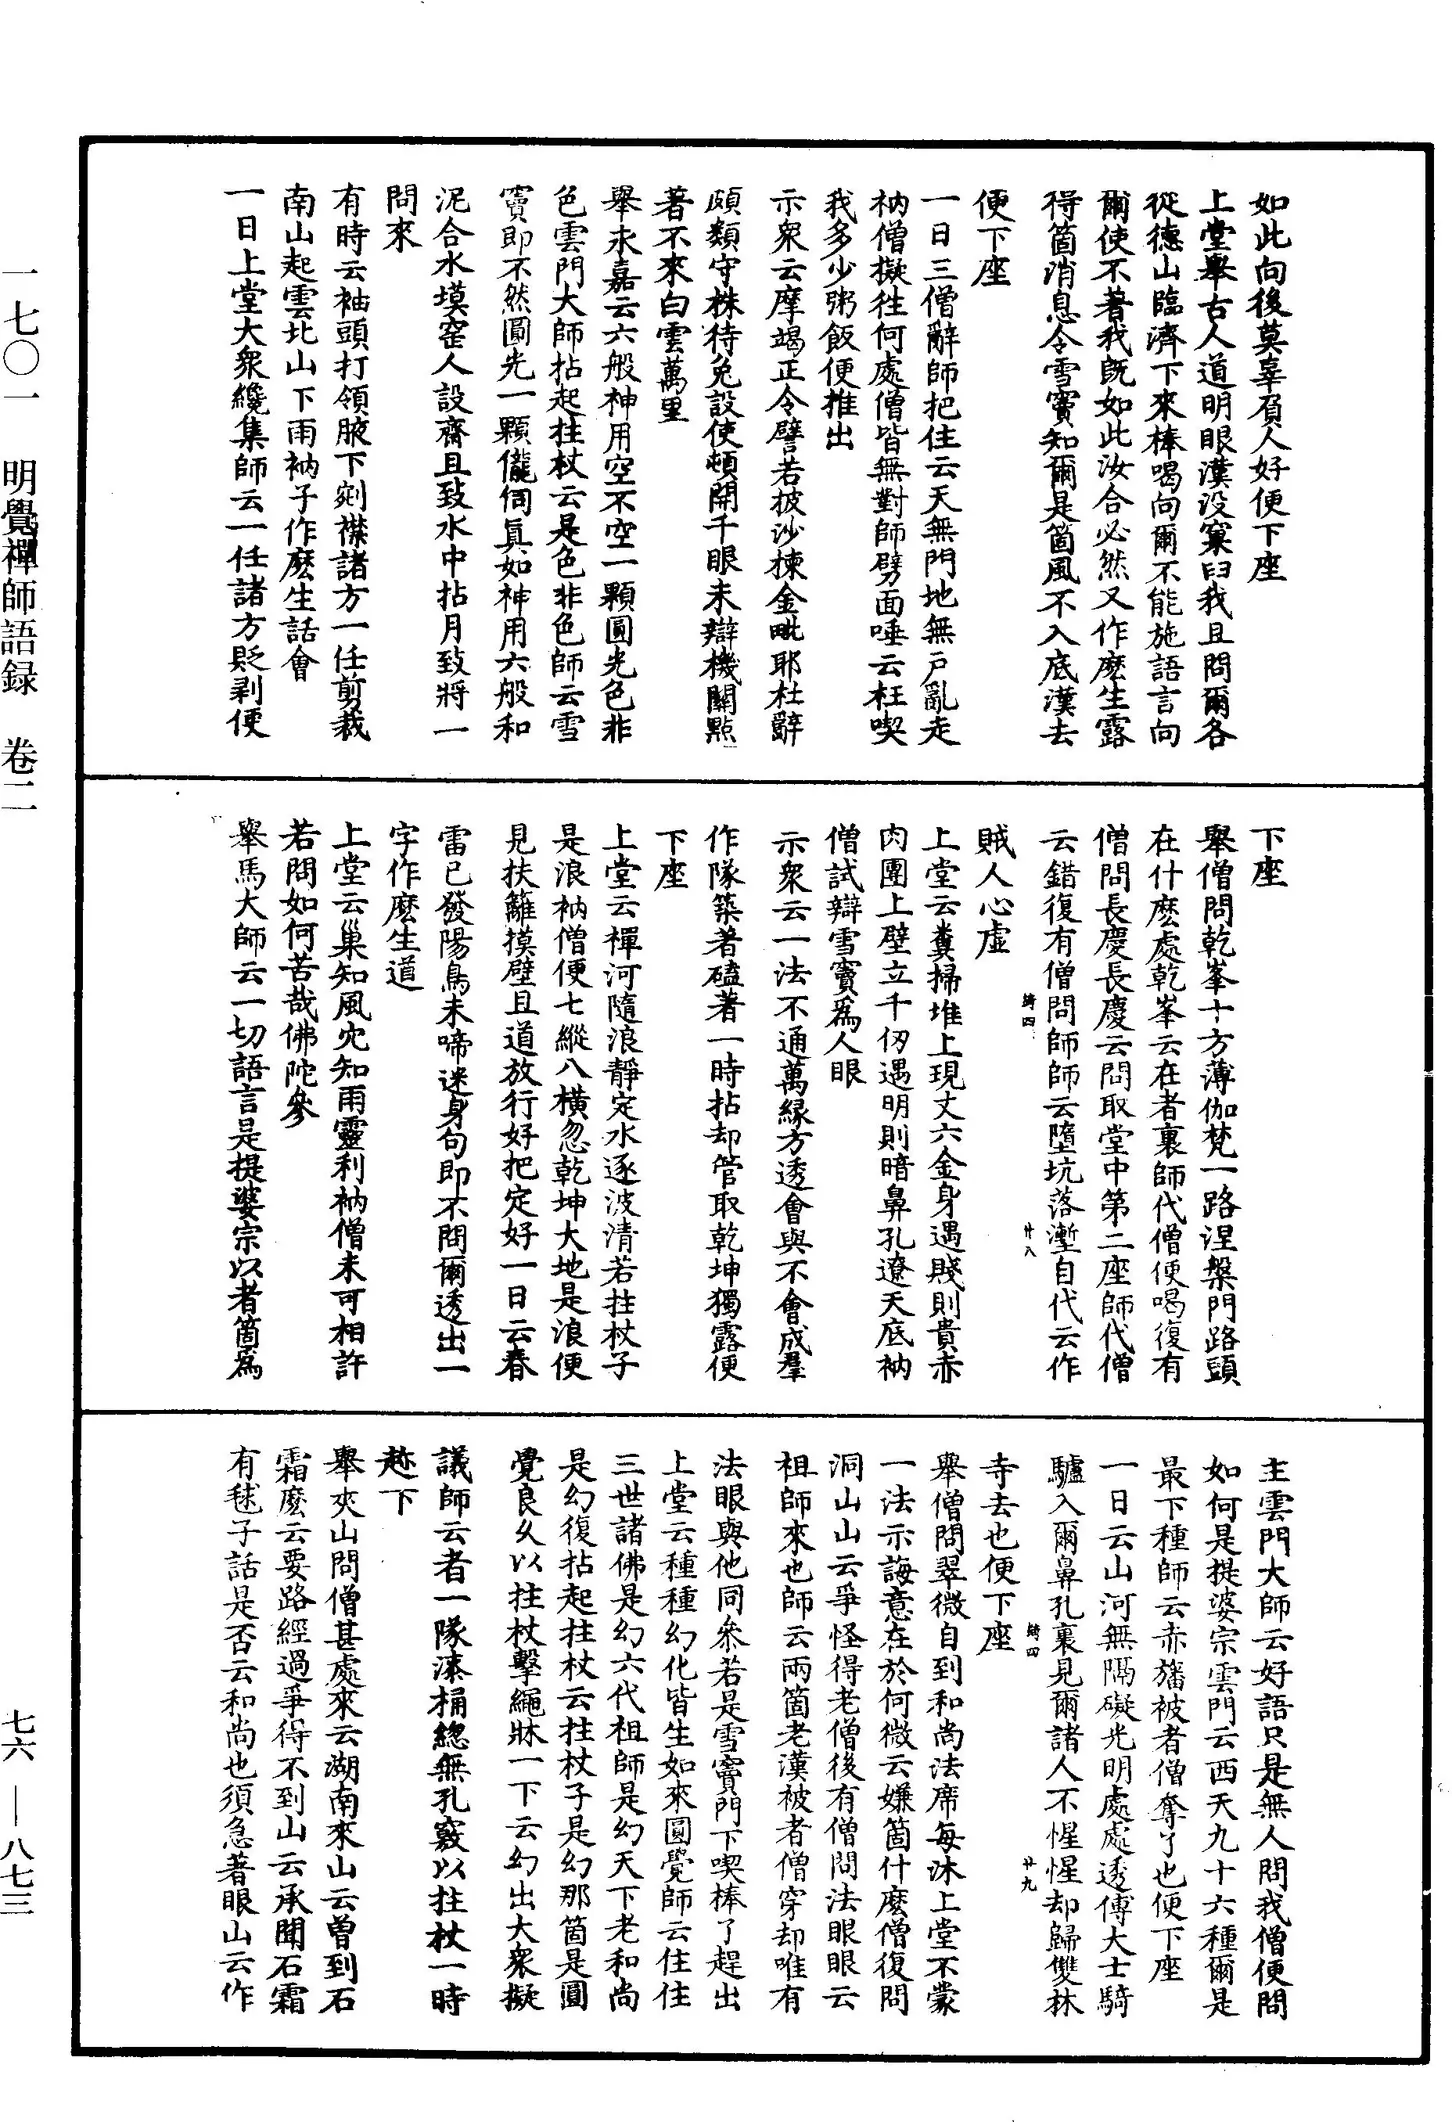 如此向後莫辜負人好便下座
上堂舉古人道明眼漢没窠臼我且問爾各
從德山臨濟下來棒喝向爾不能施語言向
爾使不著我旣如此汝合必然又作麽生露
得箇消息令雪竇知爾是箇風不入底漢去
便下座
一日三僧辭師把住云天無門地無戸亂走
衲僧擬往何處僧皆無對師劈面唾云枉喫
我多少粥飯便推出
示衆云摩竭正令譬若披沙揀金毗耶杜辭
頗類守株待兔設使頓開千眼未辯機關點
著不來白雲萬里
舉永嘉云六般神用空不空一顆圓光色非
色雲門大師拈起拄杖云是色非色師云雪
竇即不然圓光一顆儱侗眞如神用六般和
泥合水墣窑人設齋且致水中拈月致將一
問來
有時云袖頭打領腋下剜襟諸方一任剪裁
南山起雲北山下雨衲子作麽生話會
一日上堂大衆纔集師云一任諸方貶剥便
下座
舉僧問乾峯十方薄伽梵一路涅槃門路頭
在什麽處乾峯云在者裏師代僧便喝復有
僧問長慶長慶云問取堂中第二座師代僧
云錯復有僧問師師云墮坑落塹自代云作
賊人心虛
上堂云糞掃堆上現丈六金身遇賤則貴赤
肉團上壁立千仞遇明則暗鼻孔遼天底衲
僧試辯雪竇爲人眼
示衆云一法不通萬緣方透會與不會成羣
作隊築著磕著一時拈却管取乾坤獨露便
下座
上堂云禪河隨浪靜定水逐波清若拄杖子
是浪衲僧便七縱八橫忽乾坤大地是浪便
見扶籬摸壁且道放行好把定好一日云春
雷已發陽鳥未啼迷身句即不問爾透出一
字作麽生道
上堂云巢知風穴知雨靈利衲僧未可相許
若問如何苦哉佛陀參
舉馬大師云一切語言是提婆宗以者箇爲
主雲門大師云好語只是無人問我僧便問
如何是提婆宗雲門云西天九十六種爾是
最下種師云赤旛被者僧奪了也便下座
一日云山河無隔礙光明處處透傅大士騎
驢入爾鼻孔裏見爾諸人不惺惺却歸雙林
寺去也便下座
舉僧問翠微自到和尚法席每沐上堂不蒙
一法示誨意在於何微云嫌箇什麽僧復問
洞山山云爭怪得老僧後有僧問法眼眼云
祖師來也師云兩箇老漢被者僧穿却唯有
法眼與他同參若是雪竇門下喫棒了趕出
上堂云種種幻化皆生如來圓覺師云住住
三世諸佛是幻六代祖師是幻天下老和尚
是幻復拈起拄杖云拄杖子是幻那箇是圓
覺良久以拄杖擊繩牀一下云幻出大衆擬
議師云者一隊漆桶總無孔竅以拄杖一時
趂下
舉夾山問僧甚處來云湖南來山云曾到石
霜麽云要路經過爭得不到山云承聞石霜
有毬子話是否云和尚也須急著眼山云作
綺四
廿八
綺四
廿九
一七〇一 明覺禪師語録 卷二
七六—八七三